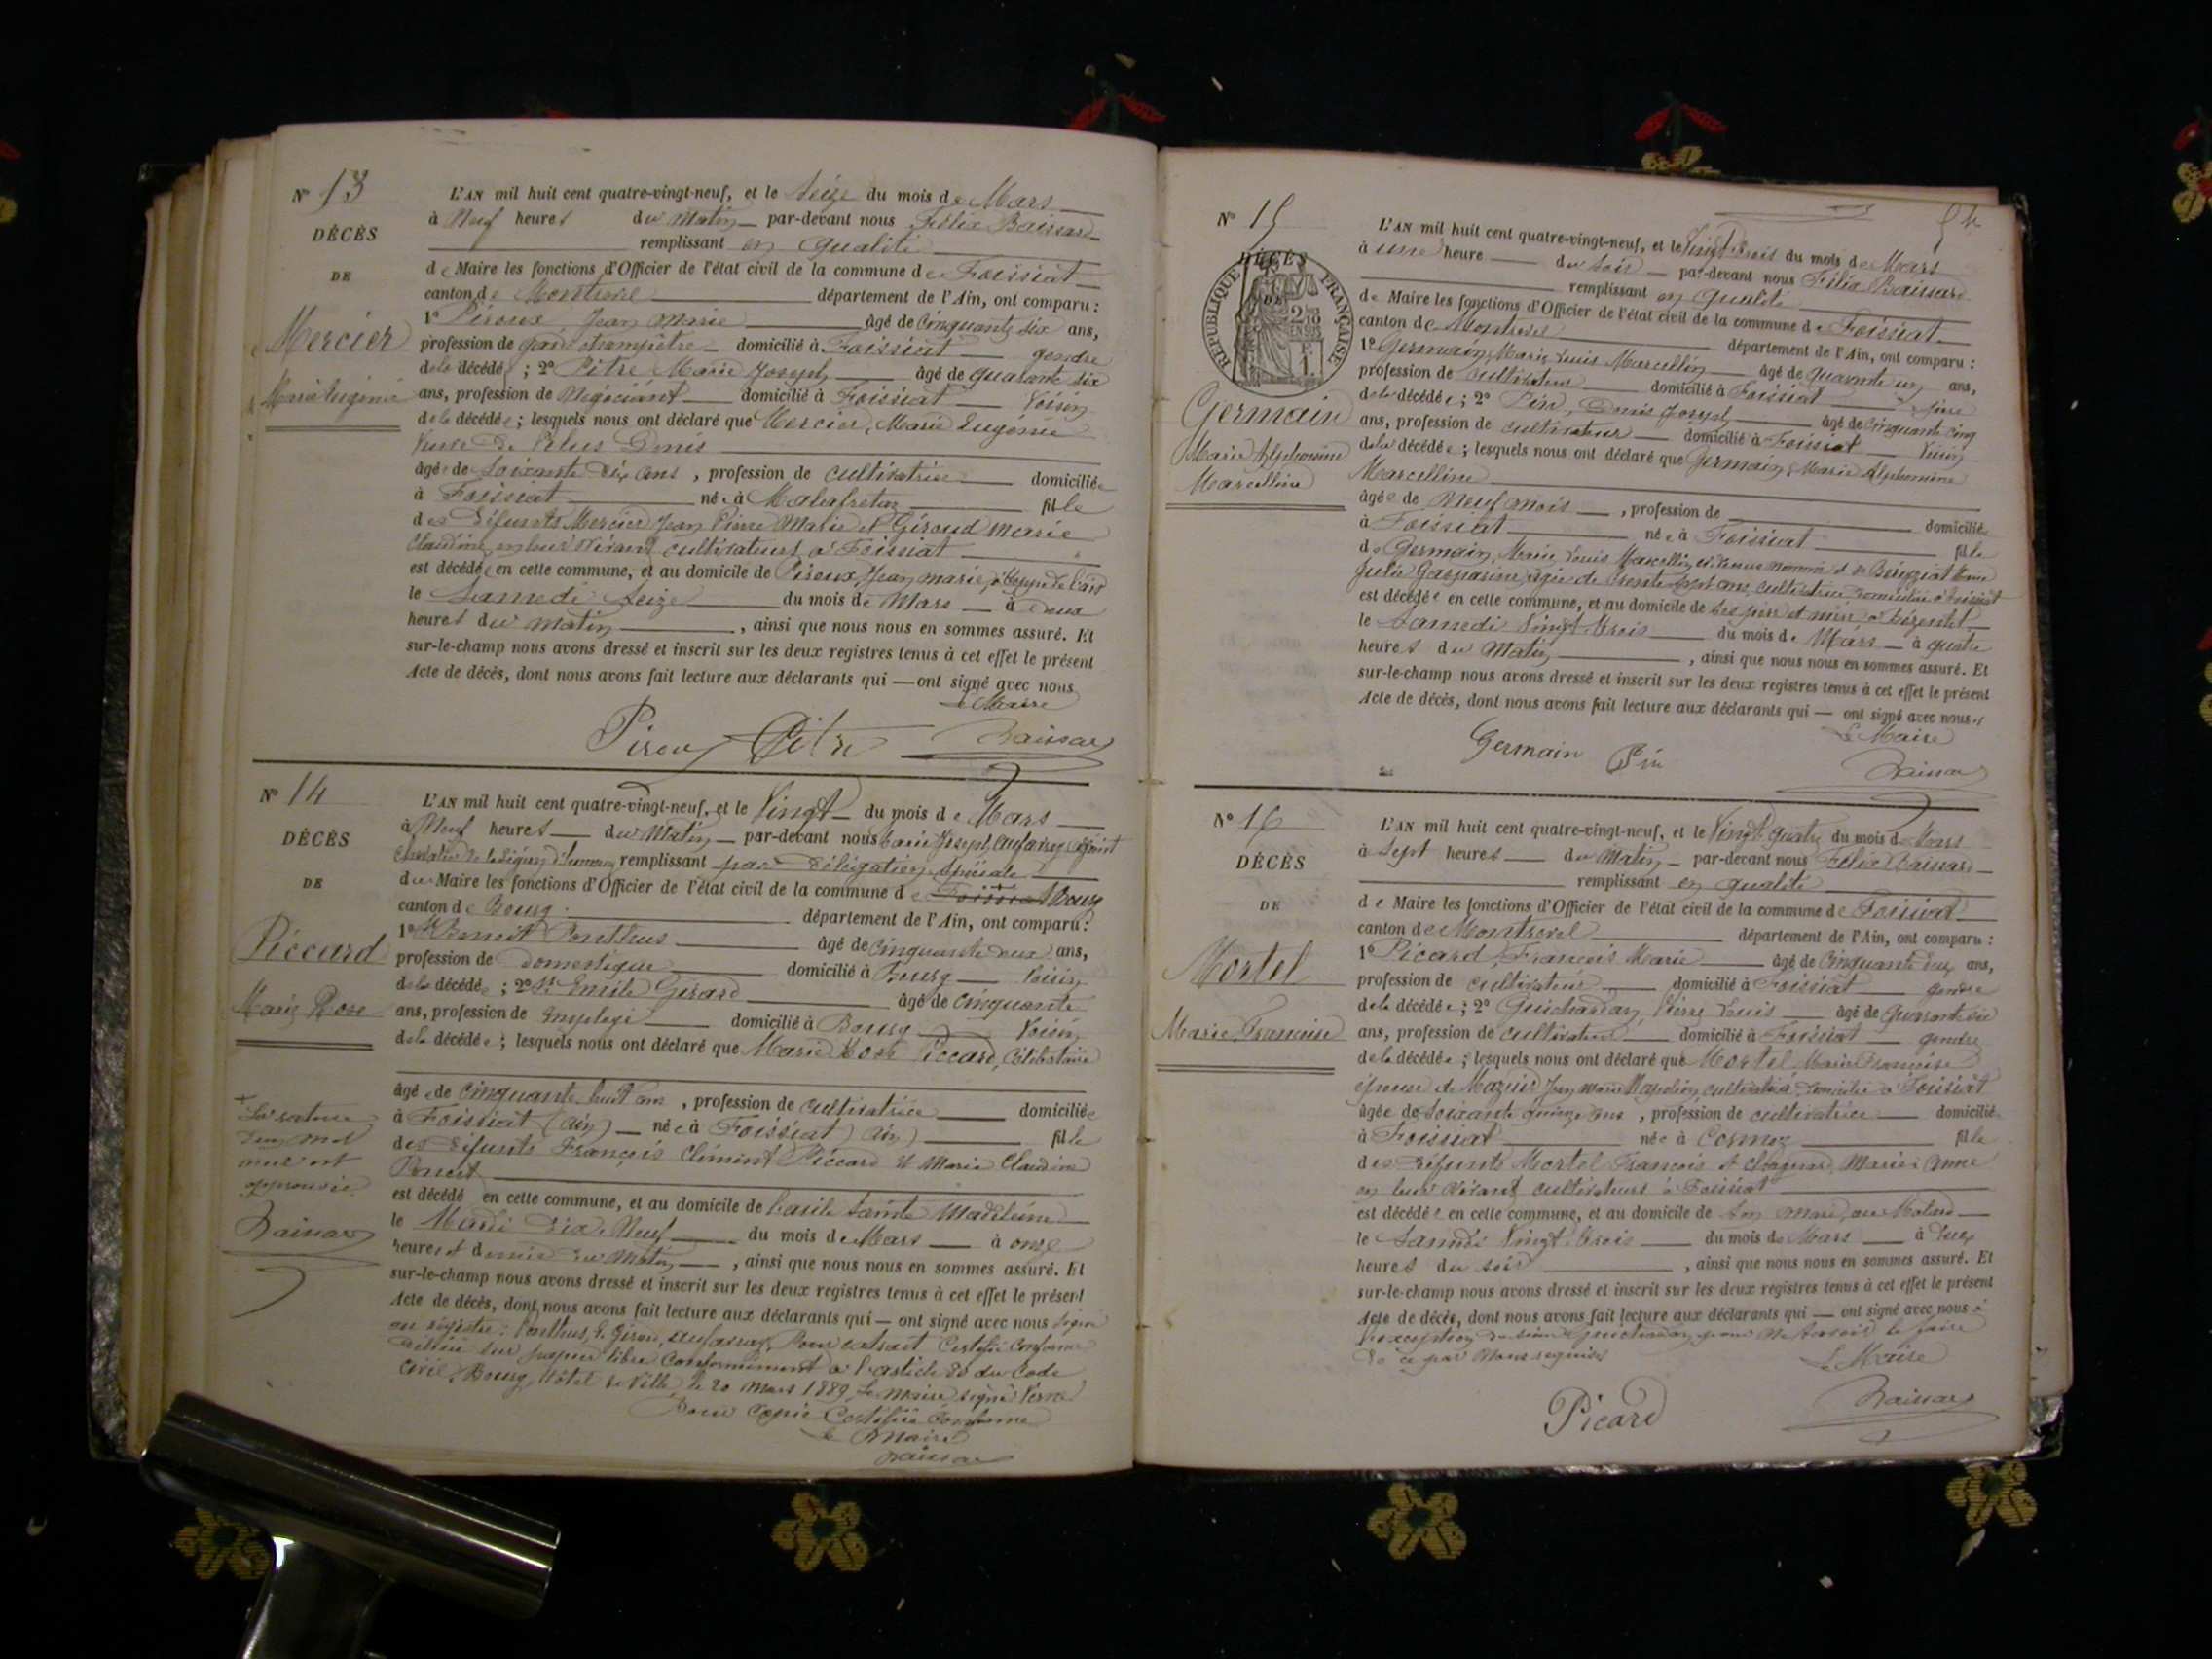 N° 13
DÉCÈS
DE
Mercier
Marie Eugénie
L'AN mil huit cent quatre-vingt-neuf, et le Seize du mois de Mars
à Neuf heures du Matin par-devant nous Félix Baissard
remplissant en qualité
de Maire les fonctions d'Officier de l'état civil de la commune de Foissiat
canton de Montrevel département de l'Ain, ont comparu :
1° Piroux Jean Marie âgé de Cinquante six ans,
profession de garde champêtre domicilié à Foissiat gendre
de la décédée ; 2° Pitre Marie Joseph âgé de quarante six
ans, profession de Négociant domicilié à Foissiat Voisin
de la décédée ; lesquels nous ont déclaré que Mercier, Marie Eugénie
Veuve de Denis
âgée de Soixante dix ans, profession de Cultivatrice domiciliée
à Foissiat née à Malafretaz fille
des défunts Mercier Jean Pierre Marie et Giroud Marie
Claudine en leur vivant cultivateurs à Foissiat
est décédée en cette commune, et au domicile de Piroux Jean marie,
le Samedi Seize du mois de Mars à deux
heures du matin, ainsi que nous nous en sommes assuré. Et
sur-le-champ nous avons dressé et inscrit sur les deux registres tenus à cet effet le présent
Acte de décès, dont nous avons fait lecture aux déclarants qui — ont signé avec nous
Le Maire
Piroux Pitre Baissard
N° 14
DÉCÈS
DE
Piccard
Marie Rose
+ La rature
d'un mot
approuvée
Baissard
L'AN mil huit cent quatre-vingt-neuf, et le Vingt du mois de Mars
à Neuf heures du Matin par-devant nous Joseph adjoint
Chevalier de la Légion d'honneur remplissant par délégation spéciale
du Maire les fonctions d'Officier de l'état civil de la commune de Foissiat Bourg
canton de Bourg département de l'Ain, ont comparu :
1° Benoit Ponthus âgé de Cinquante deux ans,
profession de Domestique domicilié à Bourg Voisin
de la décédée ; 2° Sr Emile Girard âgé de cinquante
ans, profession de Employé domicilié à Bourg Voisin
de la décédée ; lesquels nous ont déclaré que Marie Rose Piccard, Célibataire
âgée de Cinquante huit ans, profession de Cultivatrice domiciliée
à Foissiat (Ain) née à Foissiat (Ain) fille
des défunts François Clément Piccard et Marie Claudine
Poncet
est décédé en cette commune, et au domicile de l'asile Sainte Madeleine
le Mardi dix Neuf du mois de Mars à onze
heures et demie du Matin, ainsi que nous nous en sommes assuré. Et
sur-le-champ nous avons dressé et inscrit sur les deux registres tenus à cet effet le présent
Acte de décès, dont nous avons fait lecture aux déclarants qui — ont signé avec nous Signé
au registre : Ponthus, E. Girard, Pour extrait Certifié Conforme
délivré sur papier libre Conformément à l'article 80 du Code
Civil, Bourg, Hôtel de Ville, le 20 Mars 1889, Le Maire signé Verne
Pour Copie Certifiée Conforme
Le Maire
Baissard
54
N° 15
DÉCÈS
DE
RÉPUBLIQUE FRANÇAISE
Germain
Marie Alphonsine
Marcelline
L'AN mil huit cent quatre-vingt-neuf, et le Vingt trois du mois de Mars
à une heure du soir par-devant nous Félix Baissard
remplissant en qualité
de Maire les fonctions d'Officier de l'état civil de la commune de Foissiat
canton de Montrevel département de l'Ain, ont comparu :
1° Germain, Marie Louis Marcellin âgé de quarante un ans,
profession de cultivateur domicilié à Foissiat père
de la décédée ; 2° Pin, Denis Joseph âgé de cinquante cinq
ans, profession de cultivateur domicilié à Foissiat Voisin
de la décédée ; lesquels nous ont déclaré que Germain, Marie Alphonsine
Marcelline
âgée de Neuf mois, profession de domiciliée
à Foissiat née à Foissiat fille
de Germain, Marie Louis Marcellin et de Béréziat Marie
Julie Gasparine, âgée de trente sept ans, cultivatrice domiciliée à Foissiat
est décédée en cette commune, et au domicile de ses père et mère à
le Samedi Vingt trois du mois de Mars à quatre
heures du Matin, ainsi que nous nous en sommes assuré. Et
sur-le-champ nous avons dressé et inscrit sur les deux registres tenus à cet effet le présent
Acte de décès, dont nous avons fait lecture aux déclarants qui — ont signé avec nous
Le Maire
Germain Pin Baissard
N° 16
DÉCÈS
DE
Mortel
Marie Francoise
L'AN mil huit cent quatre-vingt-neuf, et le Vingt quatre du mois de Mars
à Sept heures du Matin par-devant nous Félix Baissard
remplissant en qualité
de Maire les fonctions d'Officier de l'état civil de la commune de Foissiat
canton de Montrevel département de l'Ain, ont comparu :
1° Picard, François Marie âgé de Cinquante deux ans,
profession de cultivateur domicilié à Foissiat gendre
de la décédée ; 2° Guichardan, Pierre Louis âgé de Quarante six
ans, profession de cultivateur domicilié à Foissiat gendre
de la décédée ; lesquels nous ont déclaré que Mortel Marie Françoise
épouse de Mazuir Jean Marie cultivateur domicilié à Foissiat
âgée de Soixante quinze ans, profession de cultivatrice domiciliée
à Foissiat née à Cormoz fille
des défunts Mortel François et Marie Anne
en leur vivant cultivateurs à Foissiat
est décédée en cette commune, et au domicile de son mari, au Molard
le Samedi Vingt trois du mois de Mars à deux
heures du soir, ainsi que nous nous en sommes assuré. Et
sur-le-champ nous avons dressé et inscrit sur les deux registres tenus à cet effet le présent
Acte de décès, dont nous avons fait lecture aux déclarants qui — ont signé avec nous à
l'exception du sieur Guichardan pour ne savoir le faire
de ce par Nous requis
Le Maire
Picard Baissard